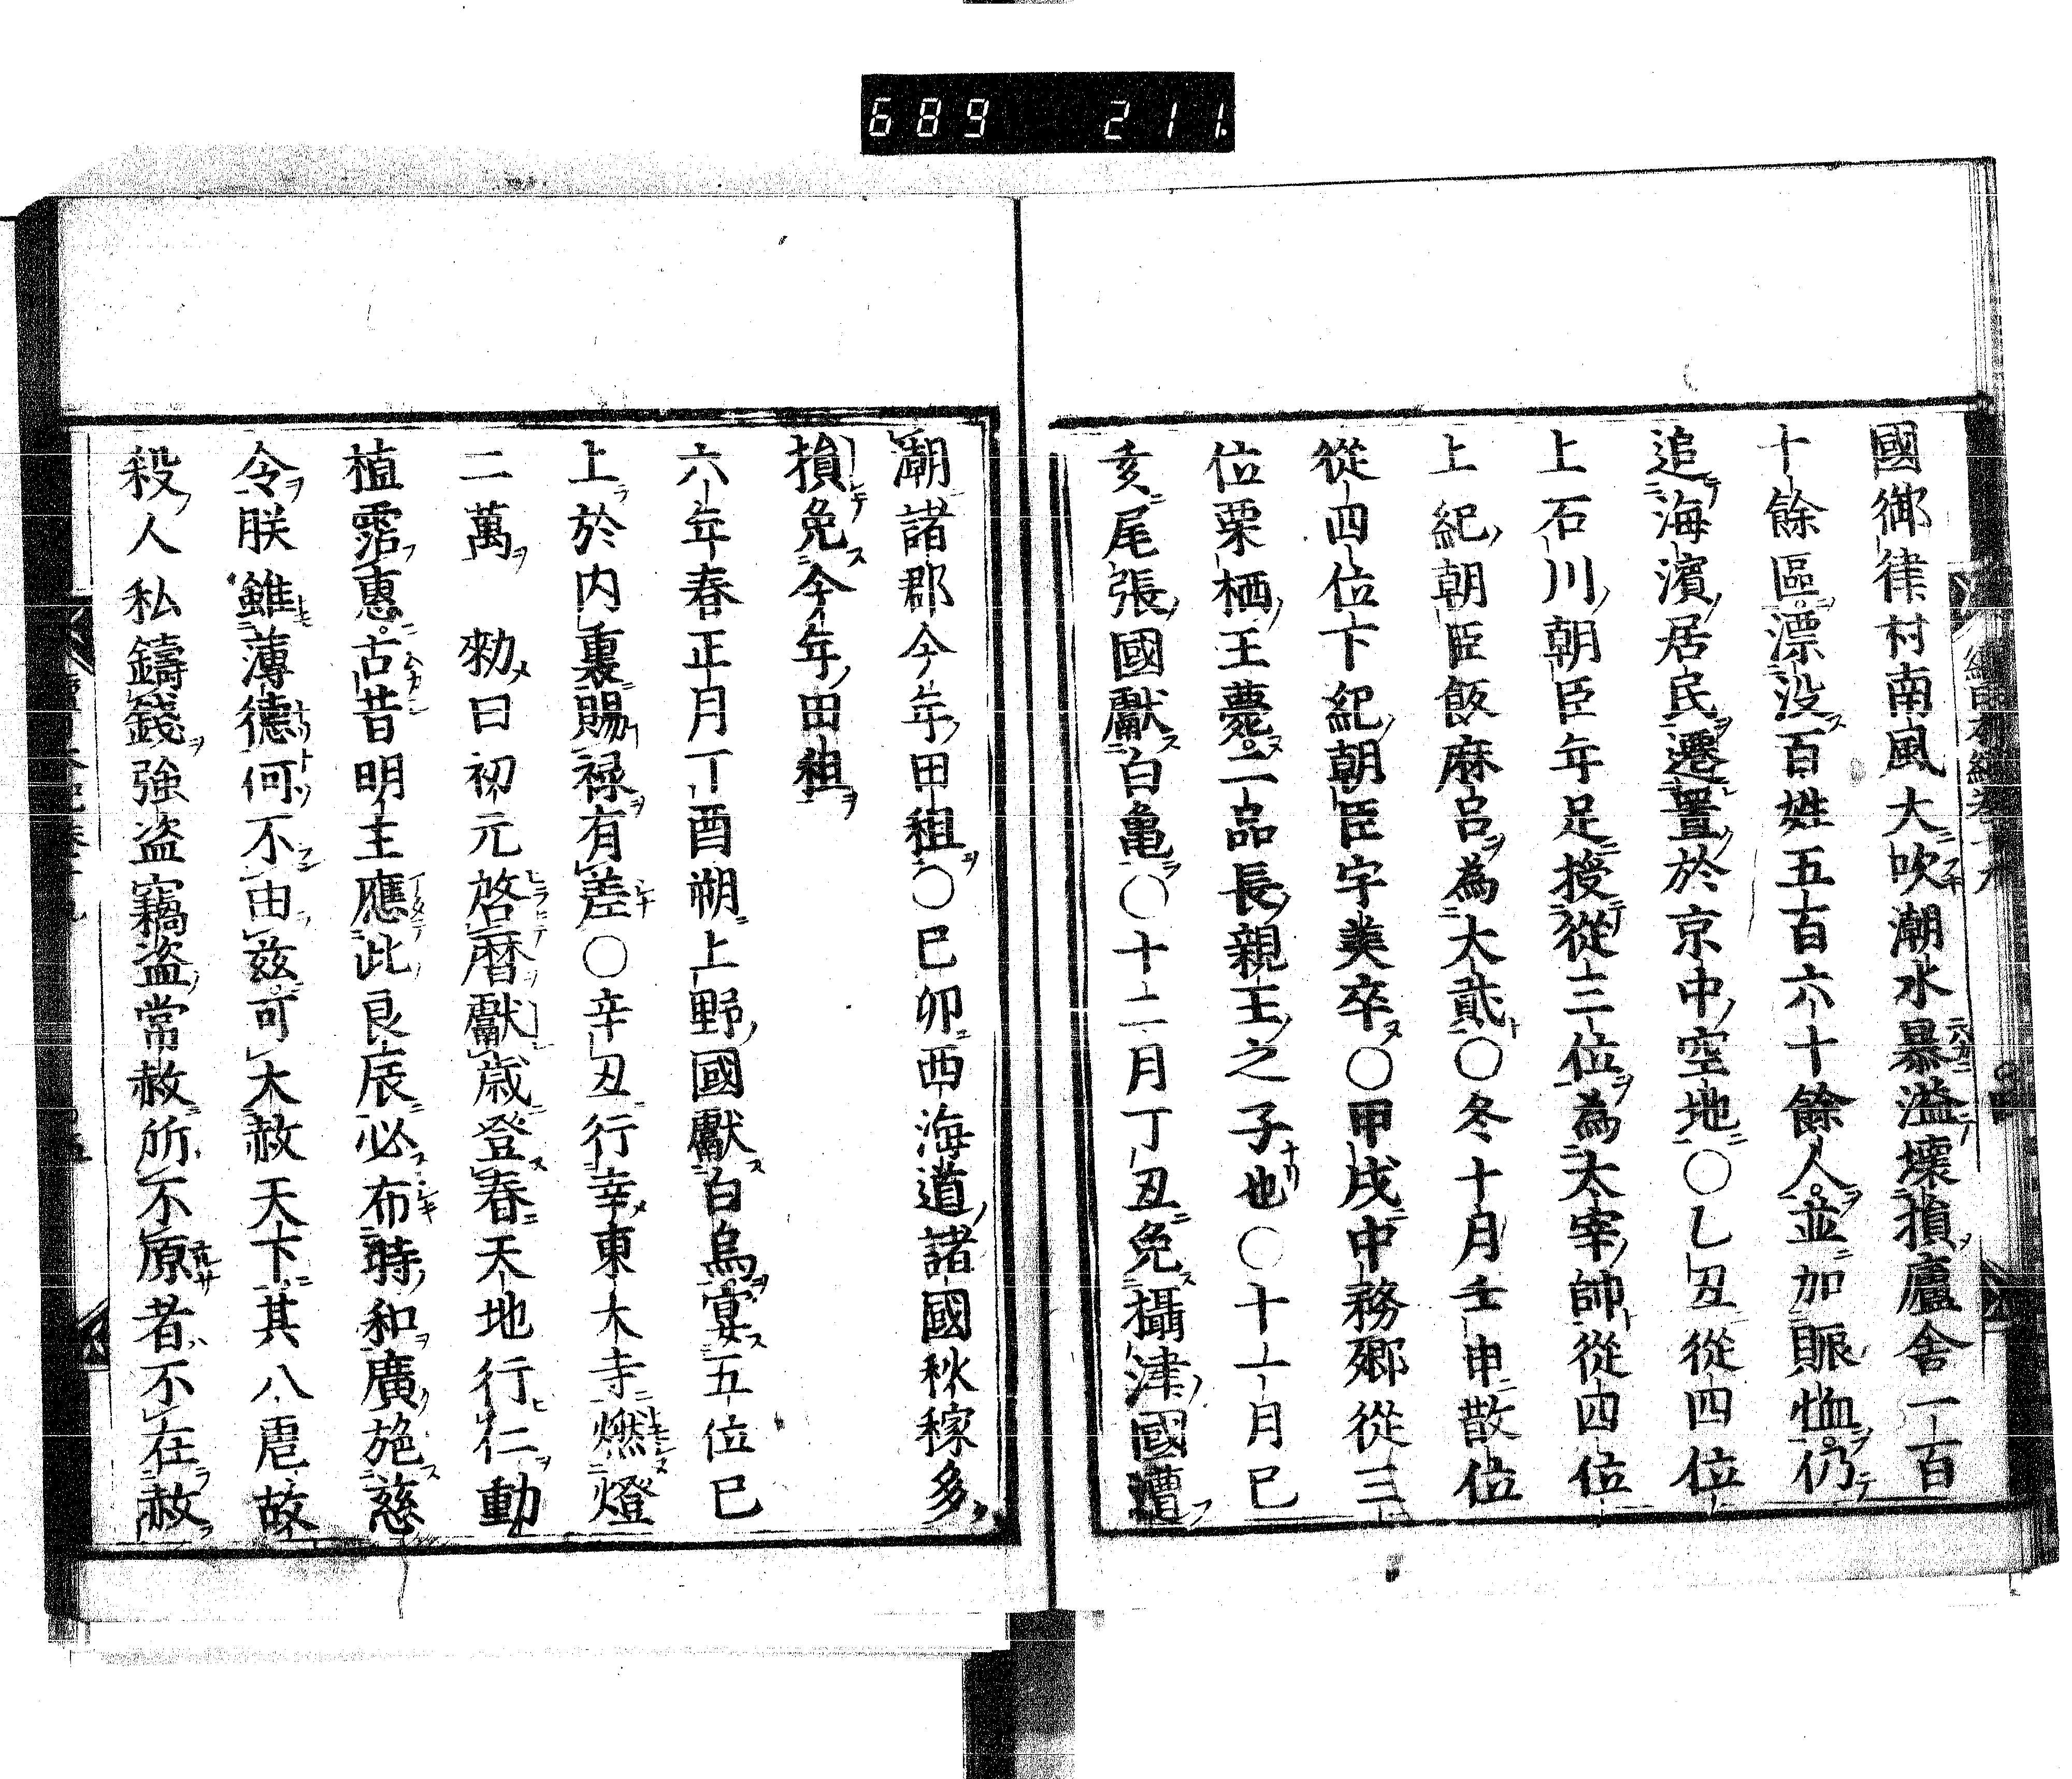 689 211.
國御律村南風大吹潮水暴溢壞損廬舍一百
十餘區漂没百姓五百六十餘人並加賑恤仍
追海濱居民遷置於京中空地〇乙丑從四位
上石川朝臣年足授從三位為太宰帥從四位
上紀朝臣飯麻呂為大貳〇冬十月壬申散位
從四位下紀朝臣宇美卒〇甲戌中務卿從三
位栗栖王薨二品長親王之子也〇十一月己
亥尾張國獻白亀〇十二月丁丑免攝津國遭
潮諸郡今年田租〇己卯西海道諸國秋稼多
損免今年田租
六年春正月丁酉朔上野國獻白烏宴五位已
上於内裏賜禄有差〇辛丑行幸東大寺燃燈
二萬 勑曰初元啓暦獻歳登春天地行仁動
植霑惠古昔明主應此良辰必布時和廣施慈
令朕雖薄德何不由玆可大赦天下其八虐故
殺人私鑄錢強盗竊盗常赦所不原者不在赦